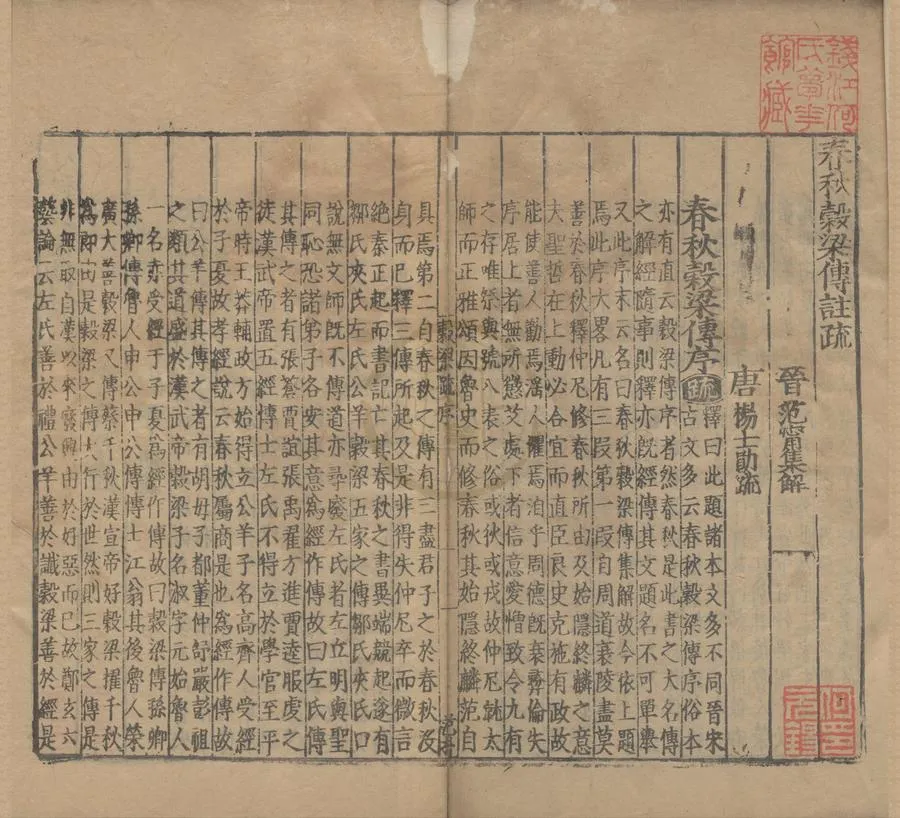 錢江何氏夢華館藏
春秋穀梁傳註疏
晉范甯集解
唐楊士勛疏
春秋穀梁傳序疏釋曰此題諸本文多不同晉宋
古文多云春秋穀梁傳序俗本
亦有直云穀梁傳序者然春秋是此書之大名傳
之解經隨事則釋亦既經傳其文題名不可單舉
又此序末云名曰春秋穀梁傳集解故今依上題
焉此序大畧凡有三叚第一叚自周道衰陵盡莫
善於春秋釋仲尼修春秋所由及始隱終麟之意
夫聖哲在上動必合宜而直臣良史克施有政故
能使善人勸焉滛人懼焉洎乎周德既衰彝倫失
序居上者無所懲艾處下者信意愛憎致令九有
之存唯祭與號八表之俗或狄或戎故仲尼就太
師而正雅頌因魯史而修春秋其始隱終麟范自
穀梁疏序
具焉第二自春秋之傳有三盡君子之於春秋沒
身而已釋三傳所起及是非得失仲尼卒而微言
絕秦正起而書記亡其春秋之書異端競起遂有
鄒氏夾氏左氏公羊穀梁五家之傳鄒氏夾氏口
說無文師既不傳道亦尋廢左氏者左丘明與聖
同恥恐諸弟子各安其意為經作傳故曰左氏傳
其傳之者有張蒼賈誼張禹翟方進賈逵服虔之
徒漢武帝置五經博士左氏不得立於學官至平
帝時王莽輔政方始得立公羊子名高齊人受經
於子夏故孝經說云春秋屬商是也為經作傳故
曰公羊傳其傳之者有胡毋子都董仲舒嚴彭祖
之類其道盛於漢武帝穀梁子名淑字元始魯人
一名赤受經于子夏為經作傳故曰穀梁傳孫卿
孫卿傳魯人申公申公傳博士江翁其後魯人榮
廣大善穀梁又傳蔡千秋漢宣帝好穀梁擢千秋
為郎由是穀梁之傳大行於世然則三家之傳是
非無取自漢以來廢興由於好惡而已故鄭玄六
藝論云左氏善於禮公羊善於讖穀梁善於經是